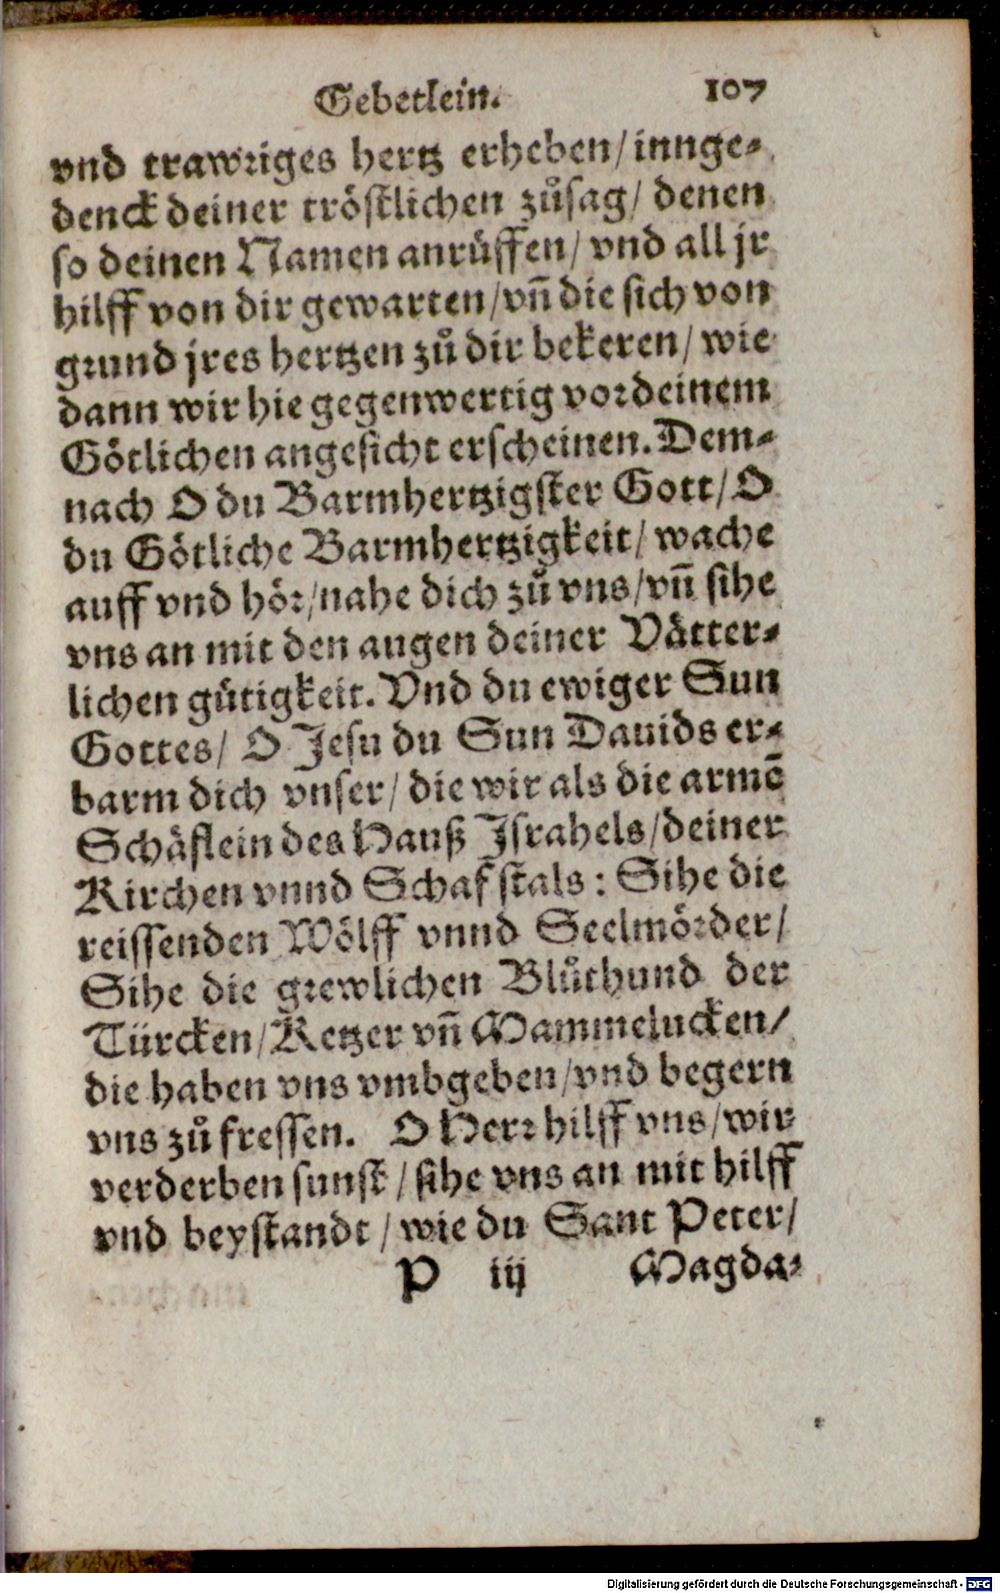 Gebetlein. 107
vnd trawriges hertz erheben/ innge-
denck deiner tröstlichen zůsag/ denen
so deinen Namen anrüffen/ vnd all jr
hilff von dir gewarten/ vñ die sich von
grund jres hertzen zů dir bekeren/ wie
dann wir hie gegenwertig vor deinem
Götlichen angesicht erscheinen. Dem-
nach O du Barmhertzigster Gott/ O
du Götliche Barmhertzigkeit/ wache
auff vnd hör/ nahe dich zů vns/ vñ sihe
vns an mit den augen deiner Vätter-
lichen gütigkeit. Vnd du ewiger Sun
Gottes/ O Jesu du Sun Dauids er-
barm dich vnser/ die wir als die armē
Schäflein des Hauß Israhels/ deiner
Kirchen vnnd Schafstals: Sihe die
reissenden Wölff vnnd Seelmörder/
Sihe die grewlichen Blůthund der
Türcken/ Ketzer vñ Mammelucken/
die haben vns vmbgeben/ vnd begern
vns zů fressen. O Herr hilff vns/ wir
verderben sunst/ sihe vns an mit hilff
vnd beystandt/ wie du Sant Peter/
P iij Magda-
Digitalisierung gefördert durch die Deutsche Forschungsgemeinschaft - DFG